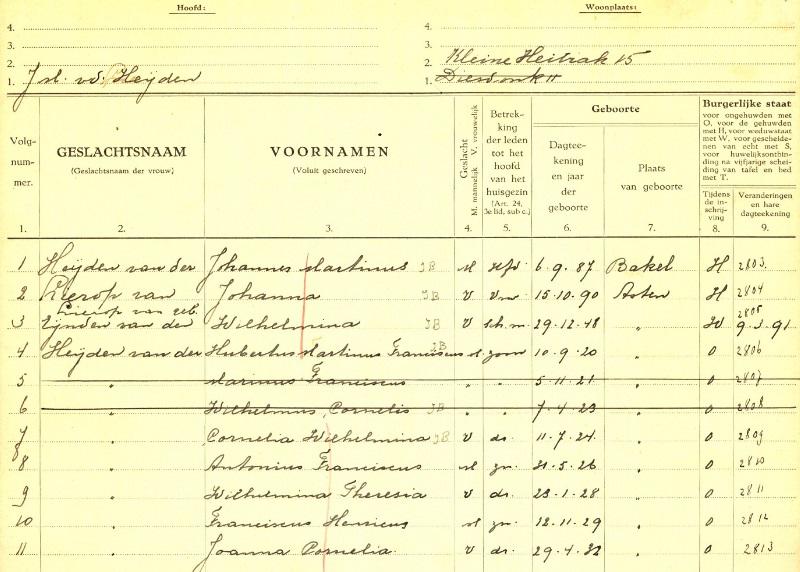 Hoofd: Woonplaats:
4. 4.
3. 3.
2. 2. Kleine Heitrak 15
1. Jsl. v.d. Heijden 1. Diesdonk 11
Volgnummer. GESLACHTSNAAM (Geslachtsnaam der vrouw) VOORNAMEN (Voluit geschreven) Geslacht M. mannelijk V. vrouwelijk Betrekking der leden tot het hoofd van het huisgezin [Art. 24, 3e lid, sub c.] Geboorte Dagteekening en jaar der geboorte Plaats van geboorte Burgerlijke staat voor ongehuwden met O, voor de gehuwden met H, voor weduwstaat met W, voor gescheidenen van echt met S, voor huwelijksontbinding na vijfjarige scheiding van tafel en bed met T. Tijdens de inschrijving Veranderingen en hare dagteekening
1. 2. 3. 4. 5. 6. 7. 8. 9.
1 Heijden van der Johannes Martinus JB M Hfd 6.9.87 Bakel H 2803.
2 Lierop van Johanna JB V Vrw 15.10.90 Asten H 2804
Lierop van geb. 2805
3 Eijnden van der Wilhelmina JB V sch.m 29.12.48 " W 9.3.91
4 Heijden van der Hubertus Martinus Franciscus JB M zoon 10.9.20 " O 2806
5 " Marinus Franciscus " " 5.11.21 " O 2807
6 " Wilhelmus Cornelis JB " " 7.4.23 " O 2808
7 " Cornelia Wilhelmina JB V dr. 11.7.24. " O 2809
8 " Antonius Franciscus M zn. 31.5.26 " O 2810
9 " Wilhelmina Theresia V dr. 23.1.28 " O 2811
10 " Franciscus Henricus M zn. 12.11.29 " O 2812
11 " Joanna Cornelia V dr. 29.4.32 " O 2813